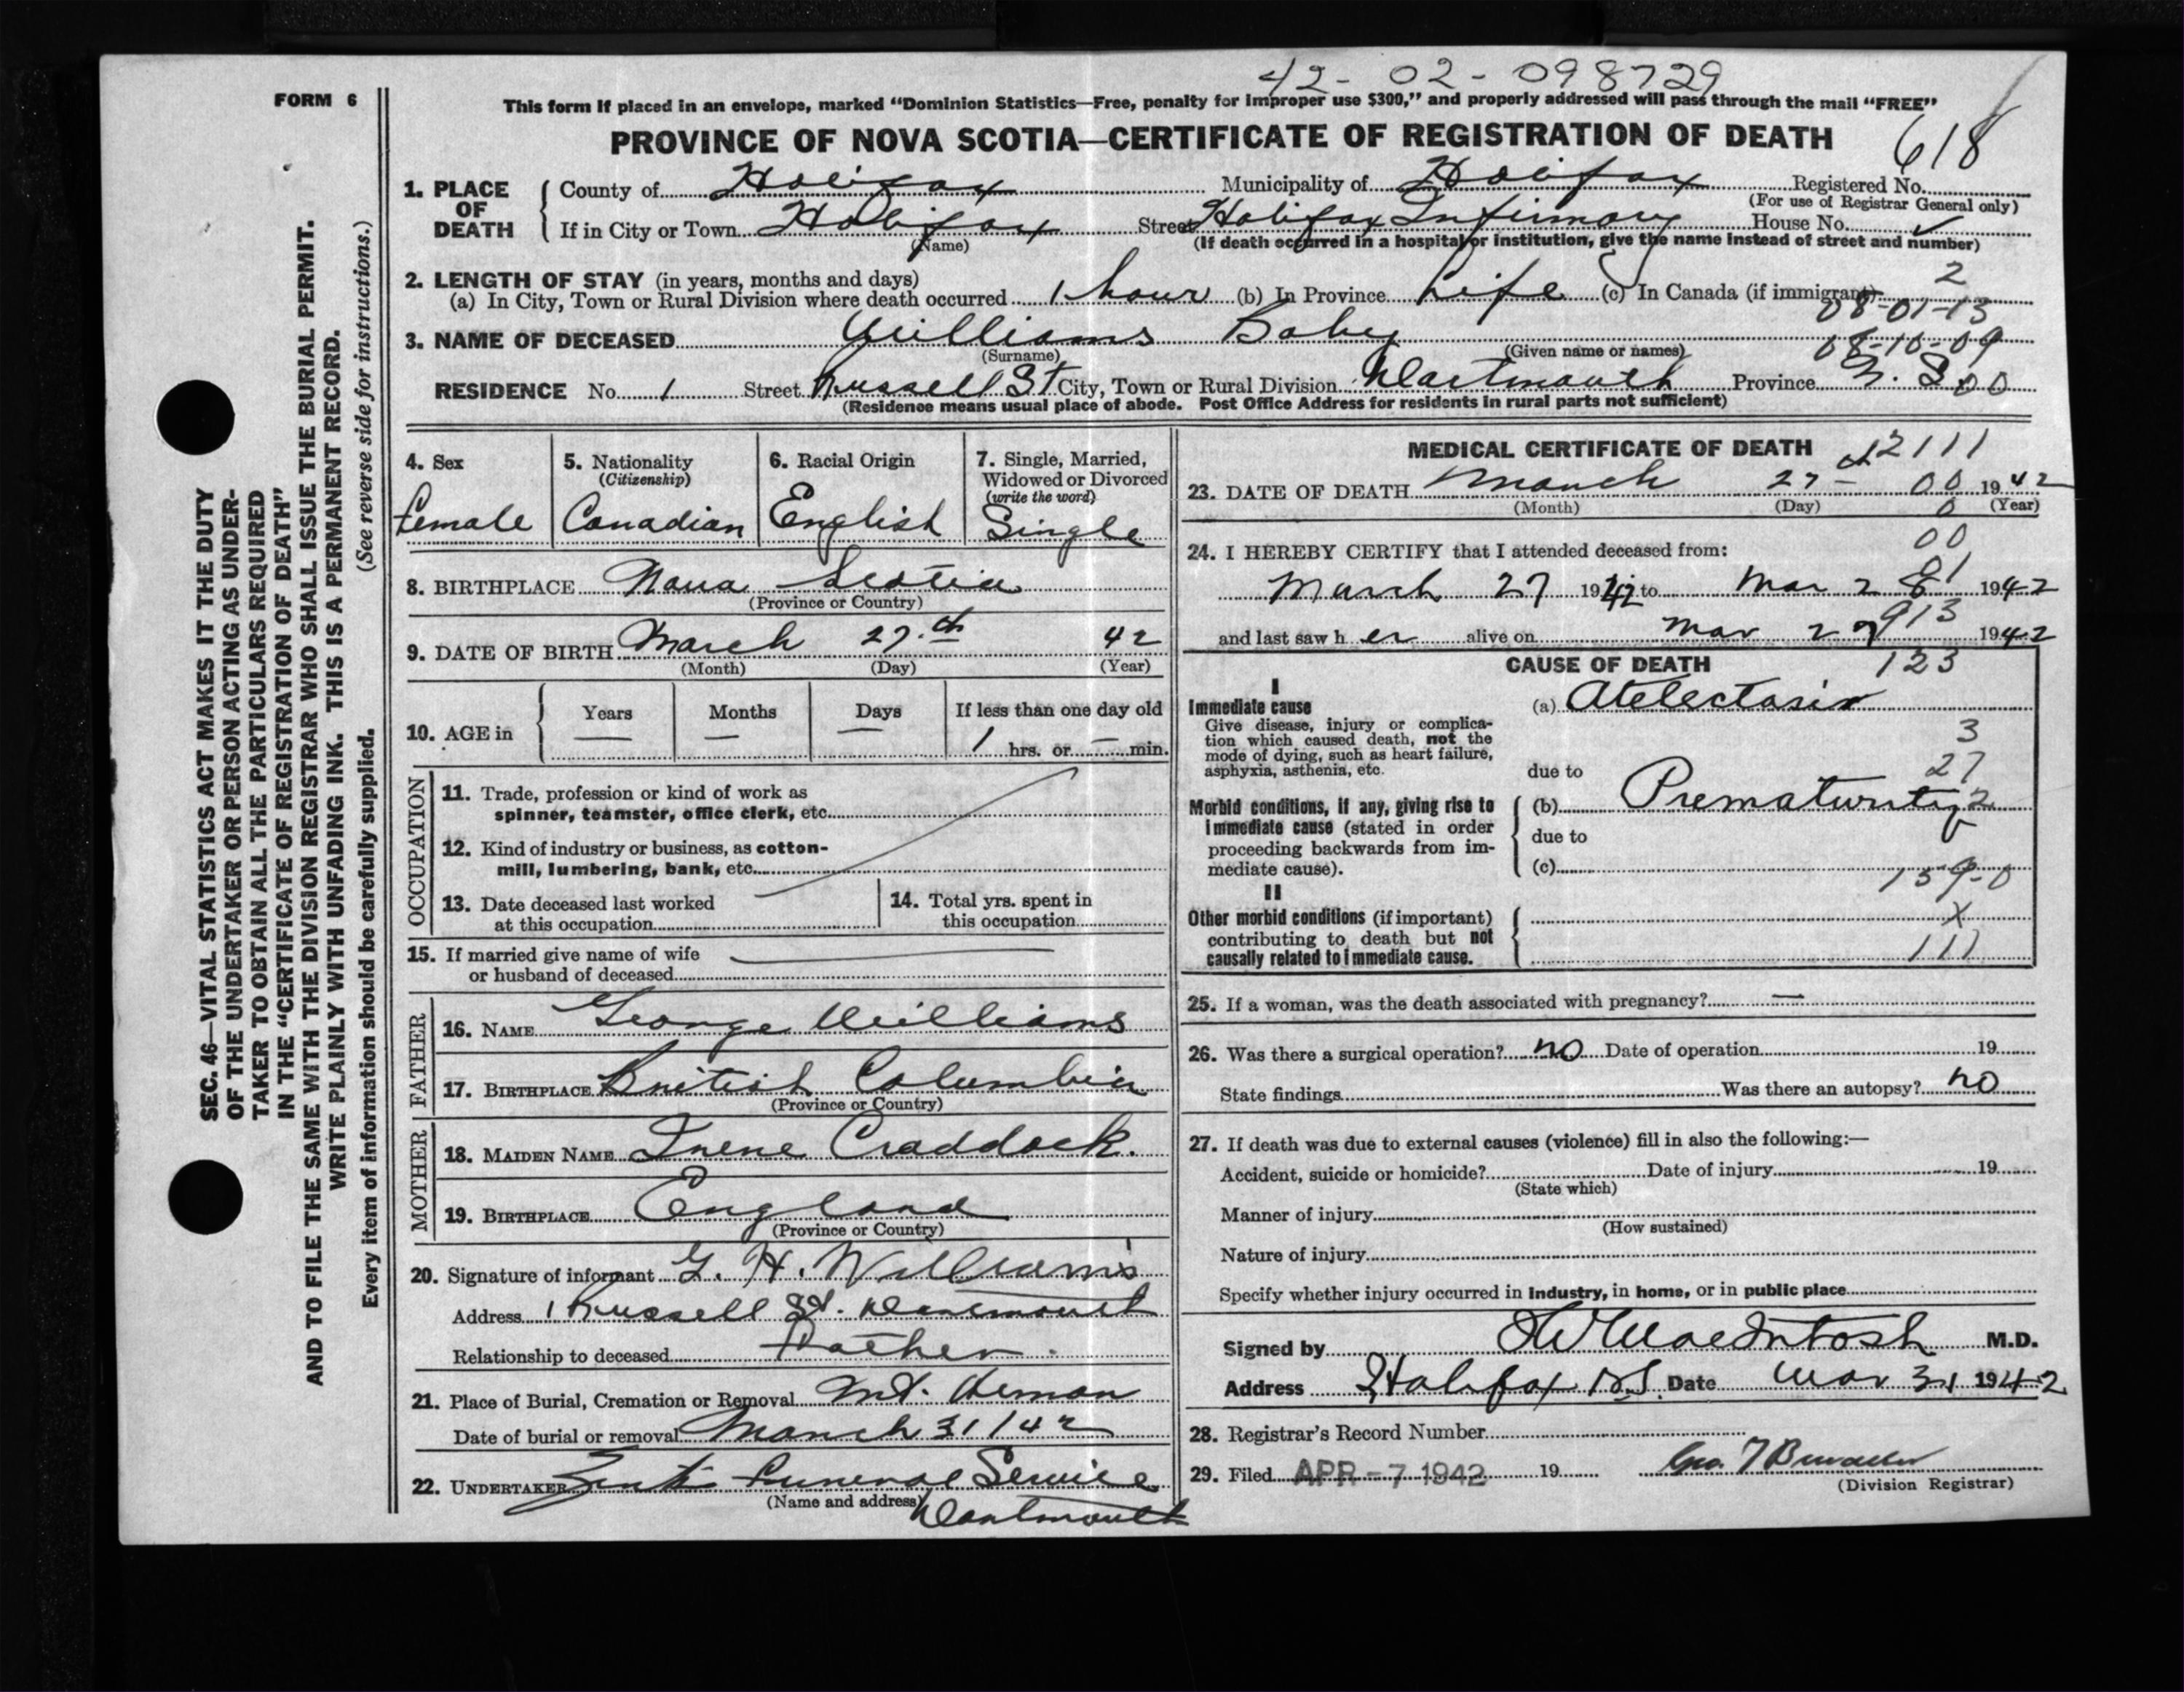 42-02-098729
FORM 6
This form if placed in an envelope, marked "Dominion Statistics—Free, penalty for improper use $300," and properly addressed will pass through the mail "FREE"
PROVINCE OF NOVA SCOTIA—CERTIFICATE OF REGISTRATION OF DEATH
618
1. PLACE OF DEATH County of Halifax Municipality of Halifax Registered No.
(For use of Registrar General only)
If in City or Town Halifax Street Halifax Infirmary House No. ✓
(Name) (If death occurred in a hospital or institution, give the name instead of street and number)
2. LENGTH OF STAY (in years, months and days) 2
(a) In City, Town or Rural Division where death occurred 1 hour (b) In Province Life (c) In Canada (if immigrant)
08-01-13
3. NAME OF DECEASED Williams Baby
(Surname) (Given name or names) 08-10-09
RESIDENCE No. 1 Street Russell St City, Town or Rural Division Dartmouth Province N. S. 00
(Residence means usual place of abode. Post Office Address for residents in rural parts not sufficient)
4. Sex
female
5. Nationality
(Citizenship)
Canadian
6. Racial Origin
English
7. Single, Married,
Widowed or Divorced
(write the word)
Single
8. BIRTHPLACE Nova Scotia
(Province or Country)
9. DATE OF BIRTH March 27.th 42
(Month) (Day) (Year)
10. AGE in Years Months Days If less than one day old
— — — 1 hrs. or — min.
OCCUPATION
11. Trade, profession or kind of work as
spinner, teamster, office clerk, etc.
12. Kind of industry or business, as cotton-
mill, lumbering, bank, etc.
13. Date deceased last worked
at this occupation
14. Total yrs. spent in
this occupation
15. If married give name of wife
or husband of deceased
FATHER
16. NAME George Williams
17. BIRTHPLACE British Columbia
(Province or Country)
MOTHER
18. MAIDEN NAME Irene Craddock.
19. BIRTHPLACE England
(Province or Country)
20. Signature of informant G. H. Williams
Address 1 Russell St. Dartmouth
Relationship to deceased Father.
21. Place of Burial, Cremation or Removal Mt. Hermon
Date of burial or removal March 31/42
22. UNDERTAKER Funeral Service
(Name and address) Dartmouth
MEDICAL CERTIFICATE OF DEATH
12111
23. DATE OF DEATH March 27 00 1942
(Month) (Day) 0 (Year)
00
24. I HEREBY CERTIFY that I attended deceased from:
01
March 27 1942 to Mar 28 1942
913
and last saw h er alive on Mar 27 1942
CAUSE OF DEATH 123
I
Immediate cause
Give disease, injury or complica-
tion which caused death, not the
mode of dying, such as heart failure,
asphyxia, asthenia, etc.
(a) Atelectasis
3
27
due to
Morbid conditions, if any, giving rise to
immediate cause (stated in order
proceeding backwards from im-
mediate cause).
(b) Prematurity 2
due to
(c)
159-0
II
Other morbid conditions (if important)
contributing to death but not
causally related to immediate cause.
X
111
25. If a woman, was the death associated with pregnancy? —
26. Was there a surgical operation? no Date of operation 19
State findings Was there an autopsy? no
27. If death was due to external causes (violence) fill in also the following:—
Accident, suicide or homicide? Date of injury 19
(State which)
Manner of injury
(How sustained)
Nature of injury
Specify whether injury occurred in industry, in home, or in public place
Signed by MacIntosh M.D.
Address Halifax N.S. Date Mar 31 1942
28. Registrar's Record Number
29. Filed APR - 7 1942 19
(Division Registrar)
SEC. 46—VITAL STATISTICS ACT MAKES IT THE DUTY
OF THE UNDERTAKER OR PERSON ACTING AS UNDER-
TAKER TO OBTAIN ALL THE PARTICULARS REQUIRED
IN THE "CERTIFICATE OF REGISTRATION OF DEATH"
AND TO FILE THE SAME WITH THE DIVISION REGISTRAR WHO SHALL ISSUE THE BURIAL PERMIT.
WRITE PLAINLY WITH UNFADING INK. THIS IS A PERMANENT RECORD.
(See reverse side for instructions.)
Every item of information should be carefully supplied.